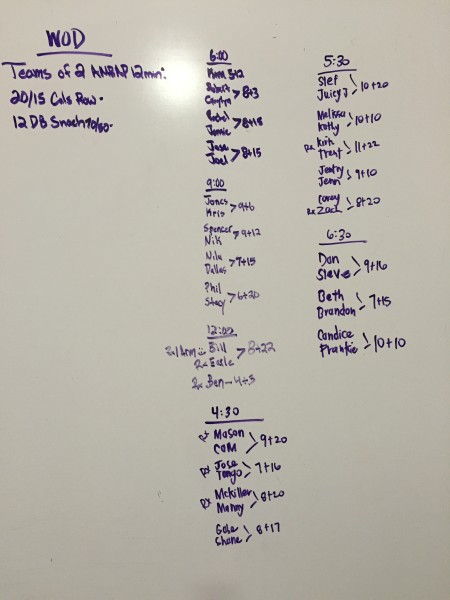 WOD
Teams of 2 AMRAP 12min:
20/15 Cals Row.
12 DB Snach 70/50.
6:00
8+3
8+15
Jose
Joel > 8+15
9:00
Jones
Kris > 9+6
Spencer
Nik > 9+12
Nilu
Dallas > 7+15
Phil
Stacy > 6+20
12:00
Bill
Earle > 8+22
Rx Ben - 4+5
4:30
Rx Mason
Cam > 9+20
Rx Jose
Tango > 7+16
Rx McKiller
Manny > 8+20
Gabe
Shane > 8+17
5:30
Stef
Juicy J > 10+20
Melissa
Kathy > 10+10
Rx Kirk
Trent > 11+22
Jenn > 9+10
Corey
Rx Zach > 8+20
6:30
Dan
Steve > 9+16
Beth
Brandon > 7+15
Candice
Frankie > 10+10